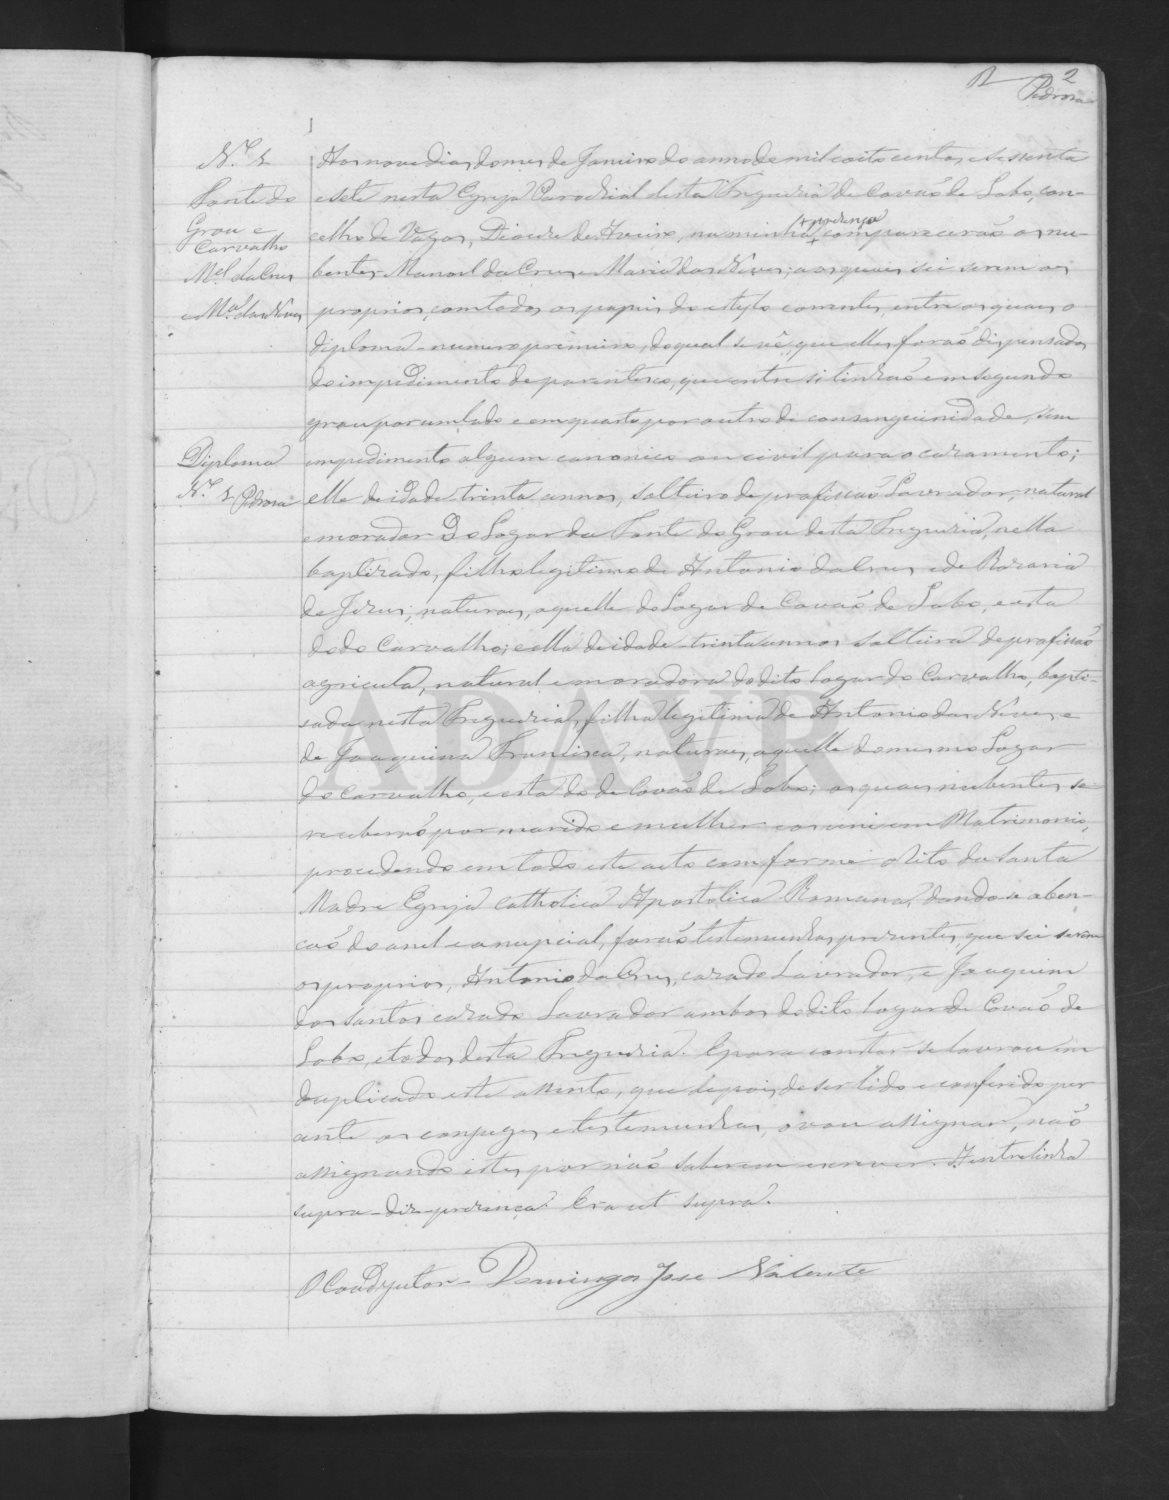 2
Pedrosa
N.º 1
Fonte do
Grou e
Carvalho
M.el da Cruz
e M.ª das Neves
Diploma
N.º 1 Pedrosa
Aos nove dias do mes de Janeiro do anno de mil e oito centos e sessenta
e sete nesta Egreja Parochial desta Freguezia de Covaõ de Lobo, con-
celho de Vagos, Diocese de Aveiro, na minha + presença + compareceraõ os nu-
bentes Manoel da Cruz e Maria das Neves; aos quaes sei serem os
proprios, com todos os papeis do estylo correntes, entre os quaes o
diploma - numero primeiro, do qual se vê, que elles foraõ dispensados
do impedimento de parentesco, que entre si tinhaõ em segundo
grau por um lado e em quarto por outro de consanguinidade, sem
impedimento algum canonico ou civil para o cazamento;
elle de idade trinta annos, solteiro de profissaõ Lavrador, natural
e morador do Logar da Fonte do Grou desta Freguezia, nella
baptizado, filho legitimo de Antonio da Cruz e de Rozaria
de Jezus; naturaes, aquelle do Logar de Covaõ de Lobo, e esta
do do Carvalho; e ella de idade - trinta annos solteira de profissaõ
agricula, natural e moradora do dito logar do Carvalho, bapti-
sada nesta Freguezia, filha legitima de Antonio das Neves e
de Joaquina Francisca, naturaes, aquelle do mesmo Logar
do Carvalho, e esta do de Covaõ de Lobo; os quaes nubentes se
receberaõ por marido e mulher e os uni em Matrimonio,
procedendo em todo este acto comforme o Rito da Santa
Madre Egreja Catholica Apostolica Romana, dando a aben-
çaõ do anel e a nupcial, foraõ testemunhas prezentes, que sei serem
os proprios, Antonio da Cruz, cazado Lavrador, e Joaquim
dos Santos cazado Lavrador ambos do dito logar de Covaõ de
Lobo, e todos desta Freguezia. E para constar se lavrou em
duplicado este assento, que depois de ser lido e conferido per
ante os conjuges e testemunhas, o vou assignar, naõ
assignando estes por naõ saberem escrever. A entrelinha
supra - diz - prezença. Era ut supra.
O Coadjutor - Domingos Jose Valente
ADAVR